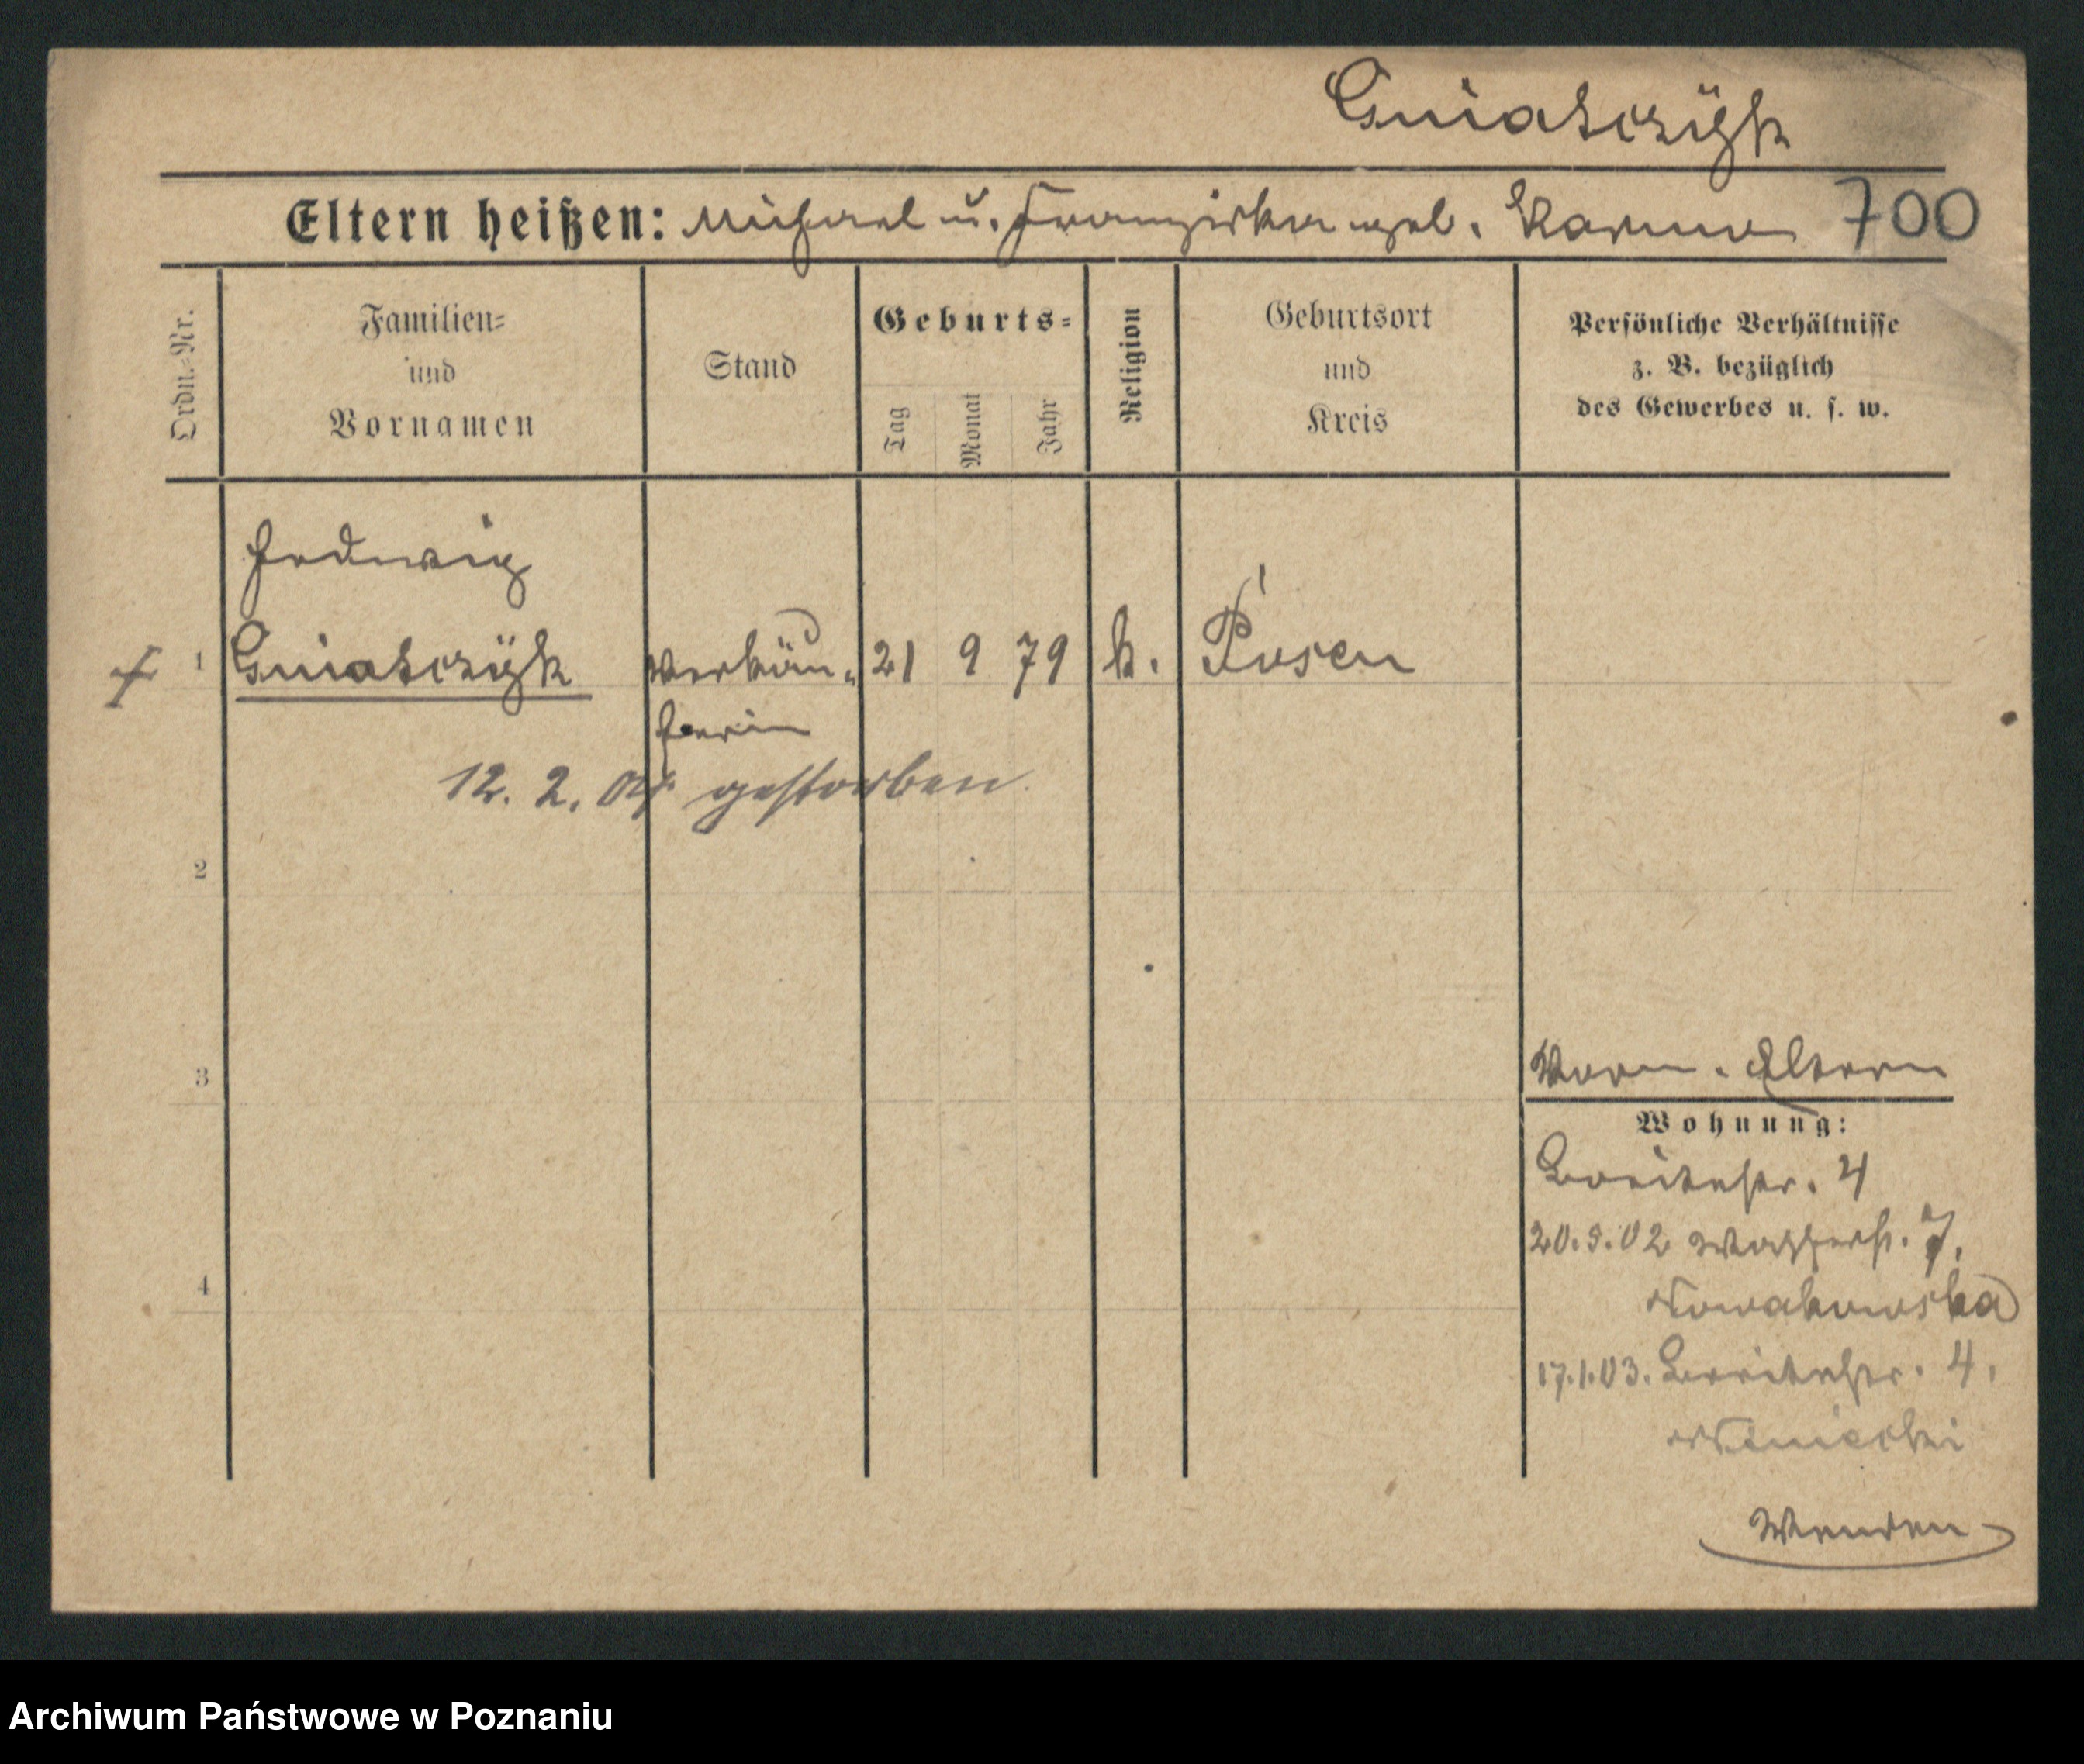 Gniatczÿk
Eltern heißen: Michael u. Franziska geb. 700
Ordn.=Nr.
Familien=
und
Vornamen
Stand
Geburts=
Tag
Monat
Jahr
Religion
Geburtsort
und
Kreis
Persönliche Verhältnisse
z. B. bezüglich
des Gewerbes u. s. w.
Hedwig
1 Gniatczÿk Verkäu= 21 9 79 k. Posen
ferin
12. 2. 04 gestorben.
2
3
Eltern
Wohnung:
Breitestr. 4
20.9.02 Wasserstr. 7.
Nowakowska
4
17.1.03. Breitestr. 4.
Wenden
Archiwum Państwowe w Poznaniu